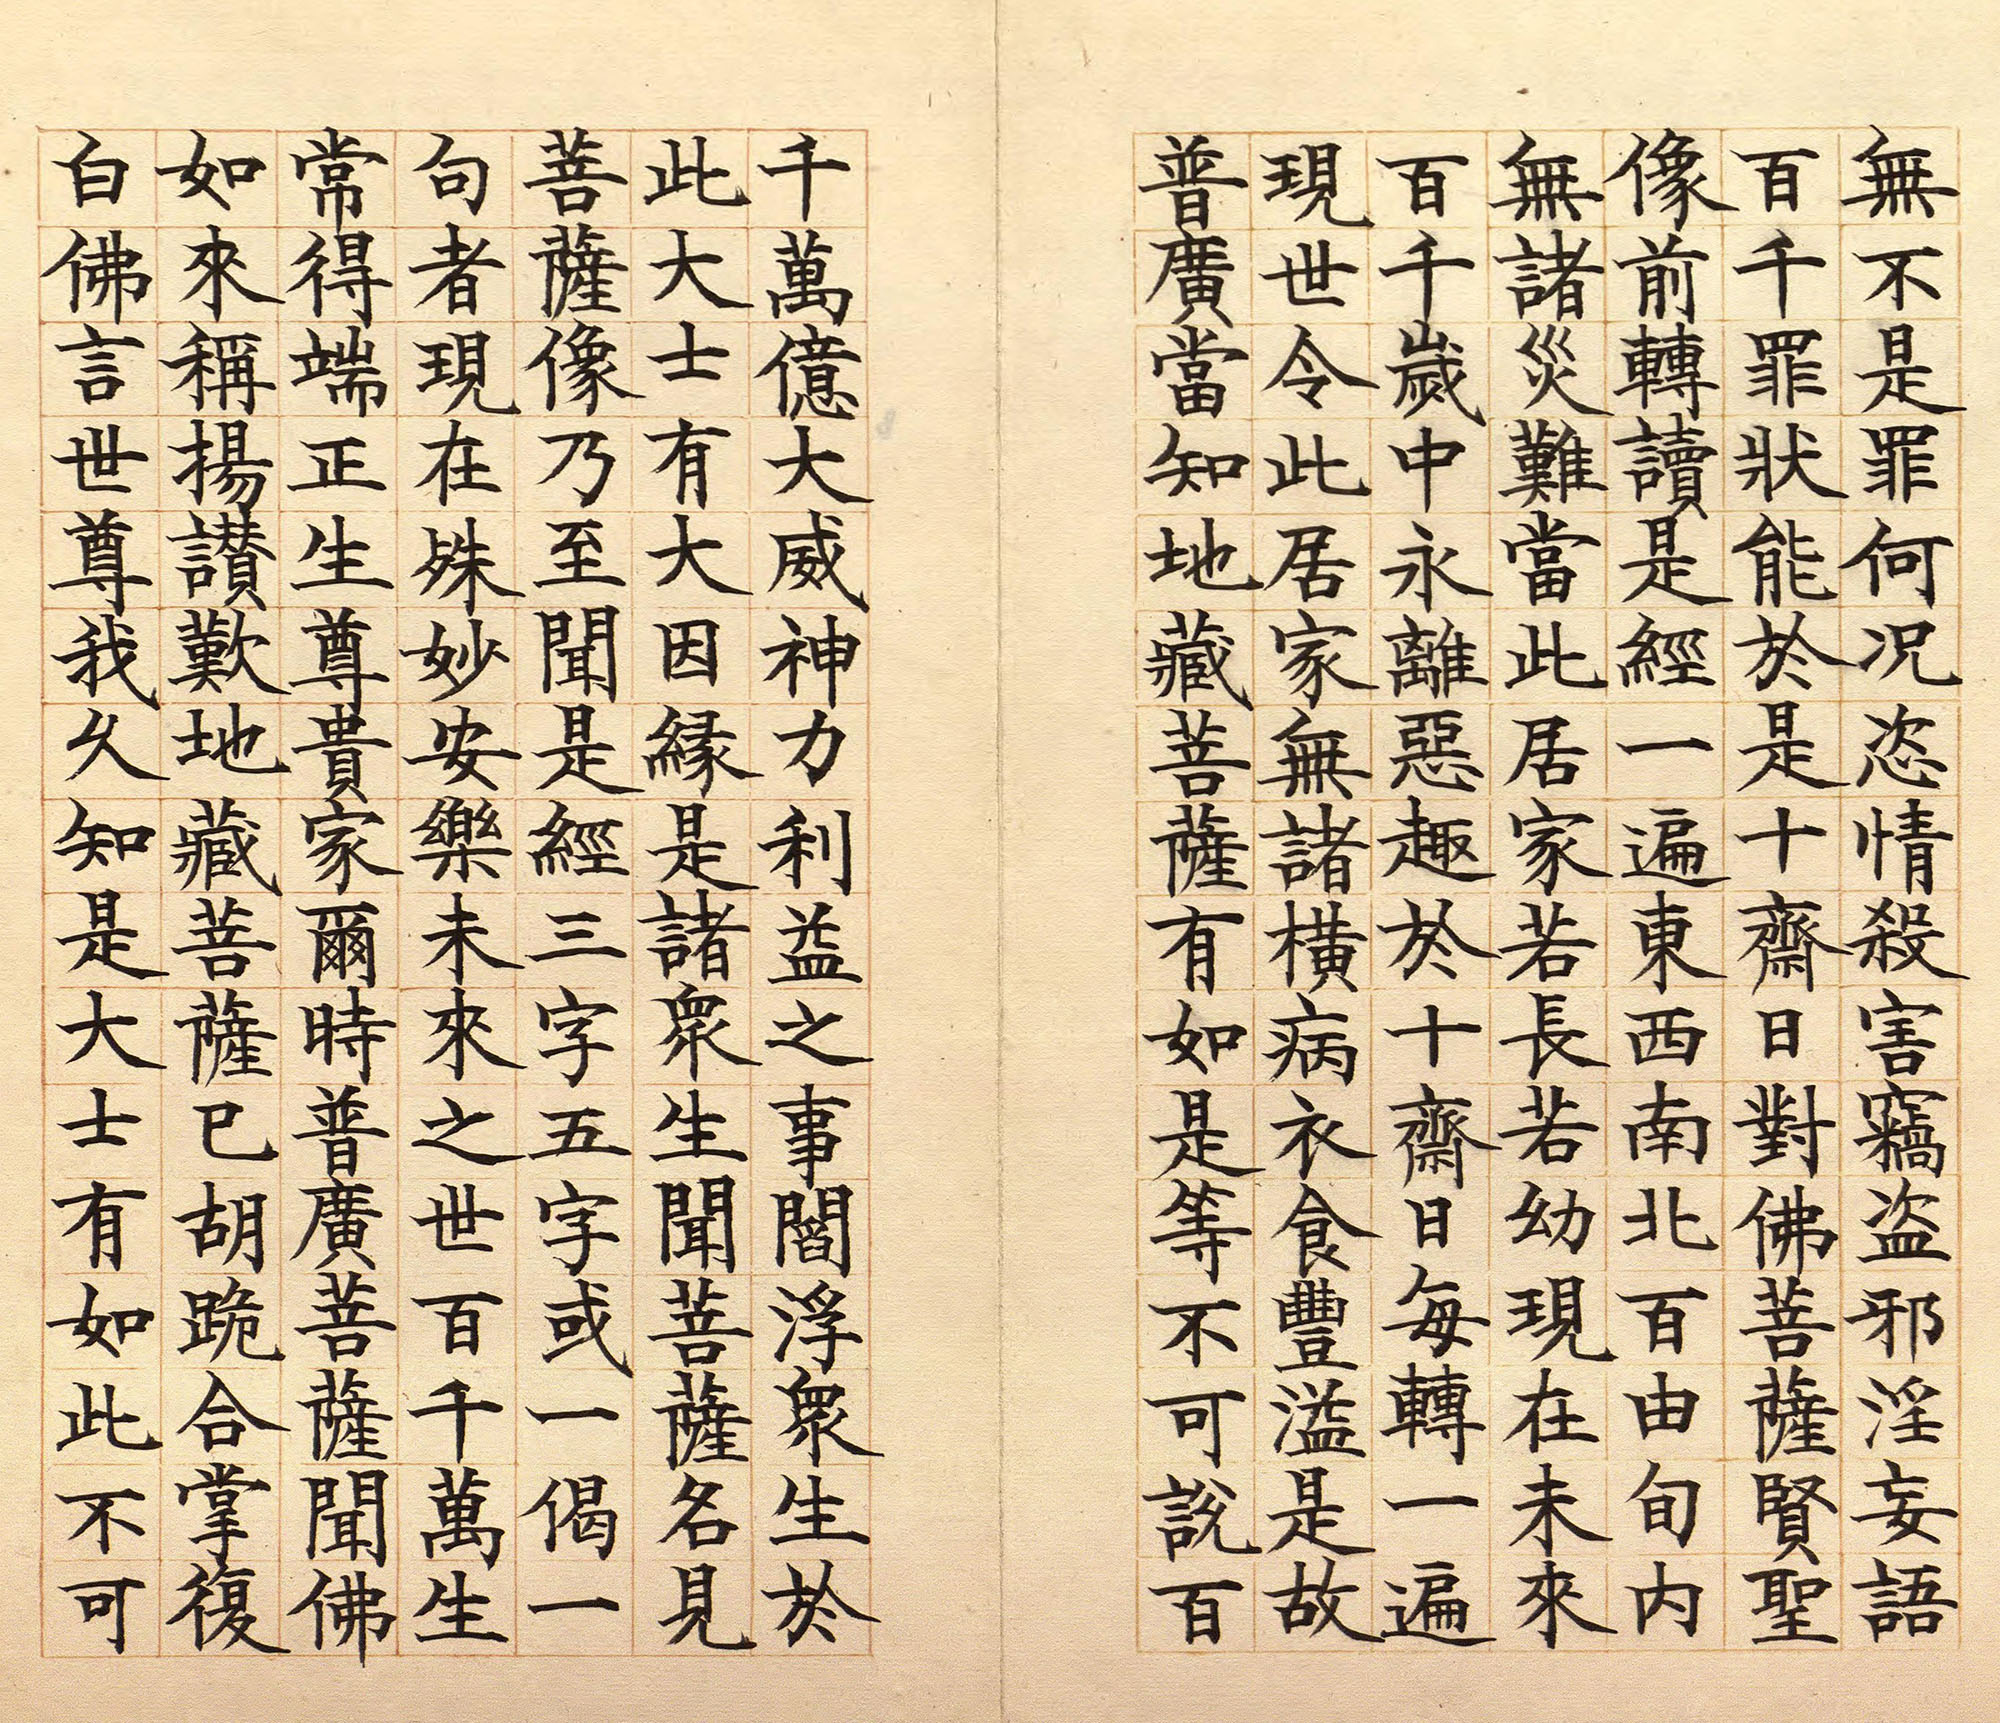 無不是罪何況恣情殺害竊盜邪淫妄語
百千罪狀能於是十齋日對佛菩薩賢聖
像前轉讀是經一遍東西南北百由旬内
無諸災難當此居家若長若幼現在未來
百千歲中永離惡趣於十齋日每轉一遍
現世令此居家無諸橫病衣食豐溢是故
普廣當知地藏菩薩有如是等不可說百
千萬億大威神力利益之事閻浮眾生於
此大士有大因緣是諸眾生聞菩薩名見
菩薩像乃至聞是經三字五字或一偈一
句者現在殊妙安樂未來之世百千萬生
常得端正生尊貴家爾時普廣菩薩聞佛
如來稱揚讃歎地藏菩薩已胡跪合掌復
白佛言世尊我久知是大士有如此不可